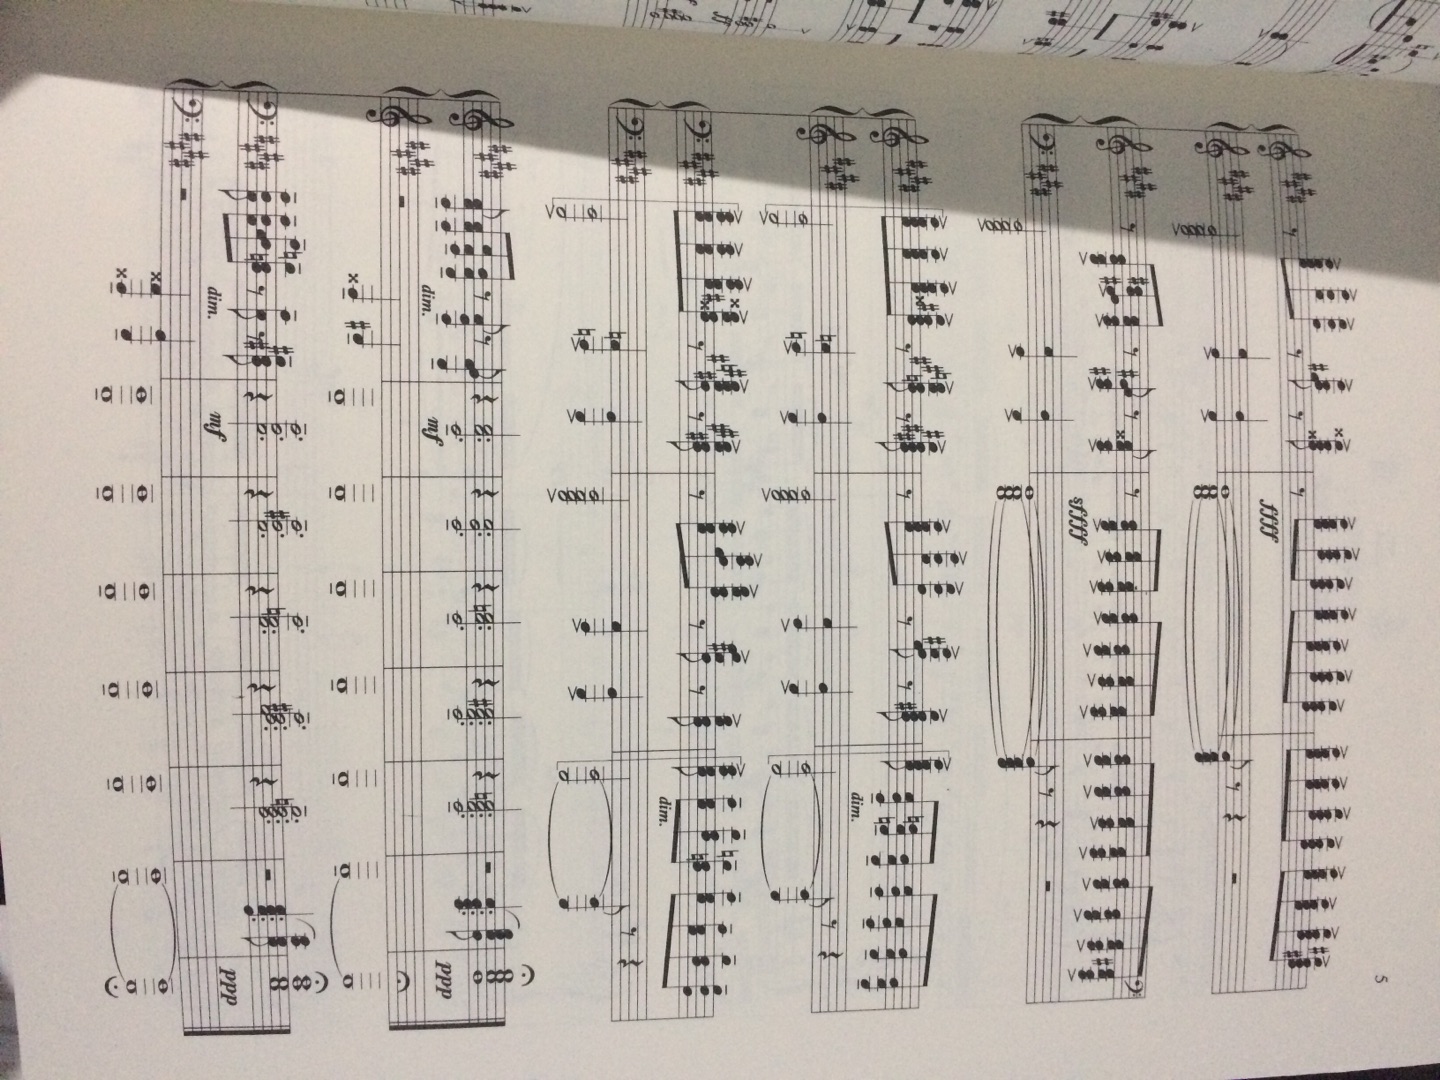 5
ffff
sffff
dim.
dim.
dim.
mf
ppp
dim.
mf
ppp